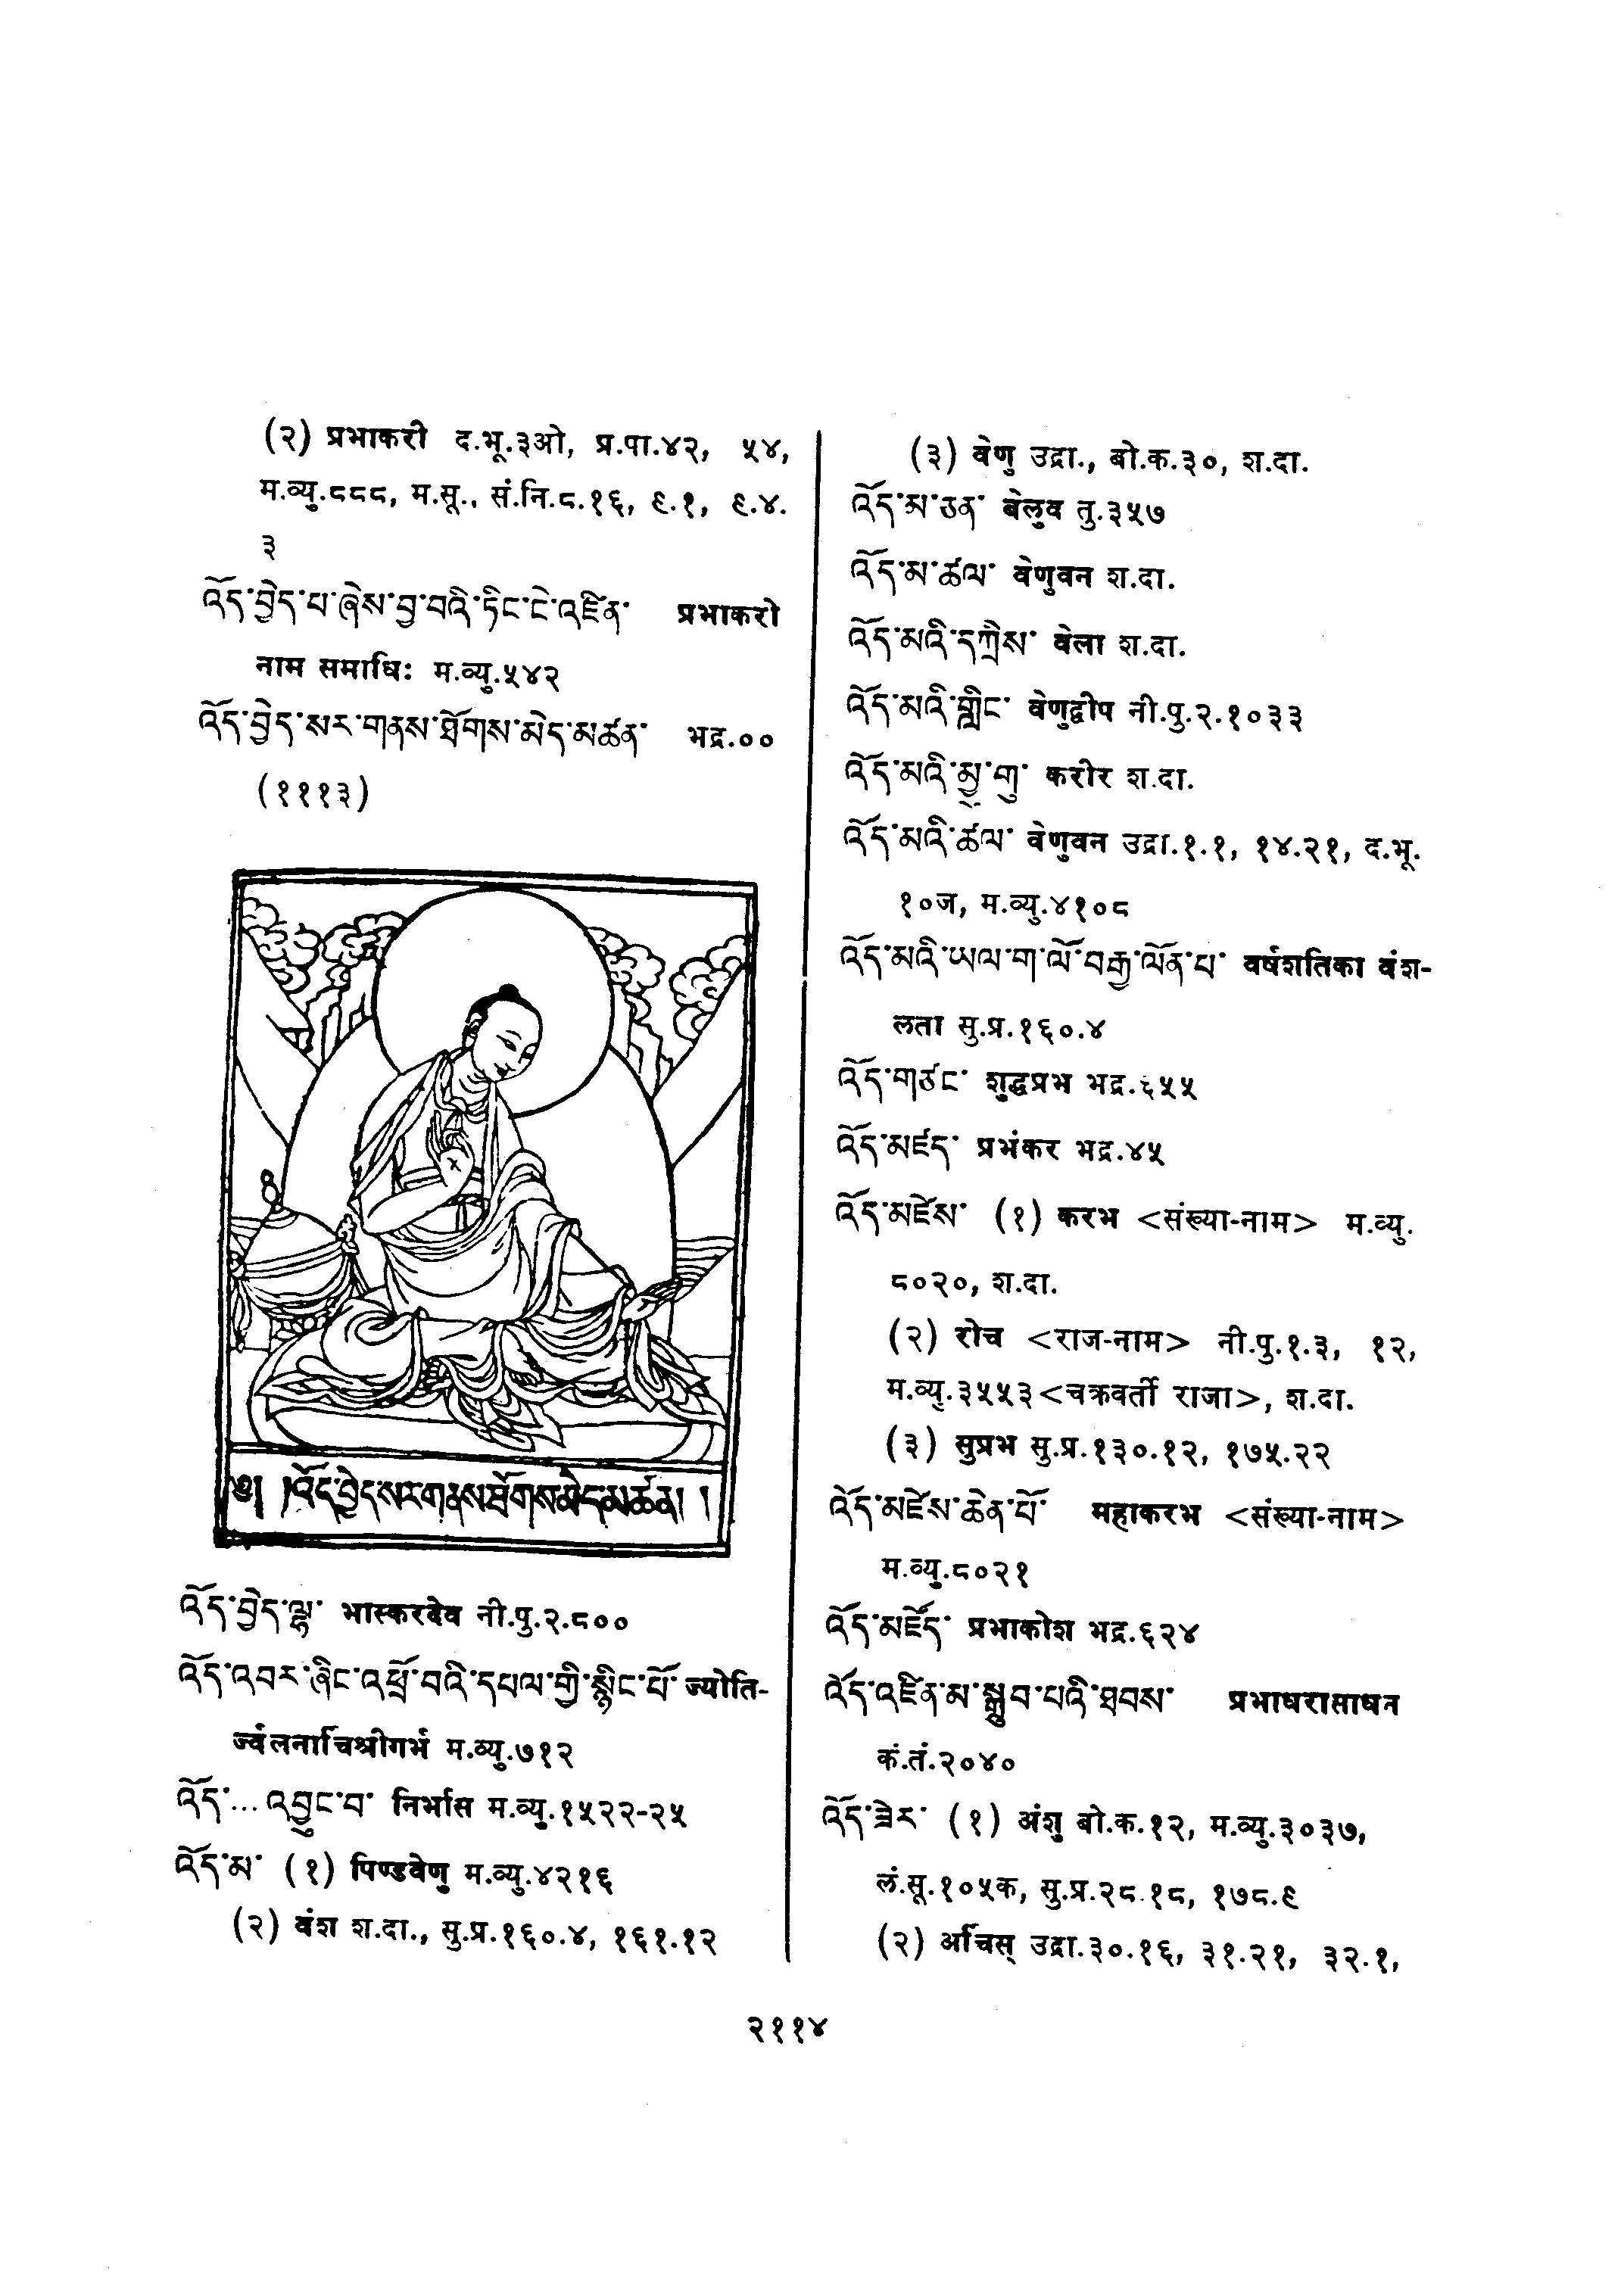 (२) प्रभाकरी द.भू.३ओ, प्र.पा.४२, ५४,
म.व्यु.८८८, म.सू., सं.नि.८.१६, ९.१, ९.४.
३
འོད་བྱེད་པ་ཞེས་བྱ་བའི་ཏིང་ངེ་འཛིན་ प्रभाकरो
नाम समाधिः म.व्यु.५४२
འོད་བྱེད་སར་གནས་ཐོགས་མེད་མཚན་ भद्र.००
(१११३)
༄། །འོད་བྱེད་སར་གནས་ཐོགས་མེད་མཚན། །
འོད་བྱེད་ལྷ་ भास्करदेव नी.पु.२.८००
འོད་འབར་ཞིང་འཕྲོ་བའི་དཔལ་གྱི་སྙིང་པོ་ ज्योति-
र्ज्वलनार्चिश्रीगर्भ म.व्यु.७१२
འོད་... འབྱུང་བ་ निर्भास म.व्यु.१५२२-२५
འོད་མ་ (१) पिण्डवेणु म.व्यु.४२१६
(२) वंश श.दा., सु.प्र.१६०.४, १६१.१२
(३) वेणु उद्रा., बो.क.३०, श.दा.
འོད་མ་ཅན་ बेलुव तु.३५७
འོད་མ་ཚལ་ वेणुवन श.दा.
འོད་མའི་དཀྲིས་ वेला श.दा.
འོད་མའི་གླིང་ वेणुद्वीप नी.पु.२.१०३३
འོད་མའི་མྱུ་གུ་ करीर श.दा.
འོད་མའི་ཚལ་ वेणुवन उद्रा.१.१, १४.२१, द.भू.
१०ज, म.व्यु.४१०८
འོད་མའི་ཡལ་ག་ལོ་བརྒྱ་ལོན་པ་ वर्षशतिका वंश-
लता सु.प्र.१६०.४
འོད་གཙང་ शुद्धप्रभ भद्र.६५५
འོད་མཛད་ प्रभंकर भद्र.४५
འོད་མཛེས་ (१) करभ <संख्या-नाम> म.व्यु.
८०२०, श.दा.
(२) रोच <राज-नाम> नी.पु.१.३, १२,
म.व्यु.३५५३<चक्रवर्ती राजा>, श.दा.
(३) सुप्रभ सु.प्र.१३०.१२, १७५.२२
འོད་མཛེས་ཆེན་པོ་ महाकरभ <संख्या-नाम>
म.व्यु.८०२१
འོད་མཛོད་ प्रभाकोश भद्र.६२४
འོད་འཛིན་མ་སྒྲུབ་པའི་ཐབས་ प्रभाधरासाधन
कं.तं.२०४०
འོད་ཟེར་ (१) अंशु बो.क.१२, म.व्यु.३०३७,
लं.सू.१०५क, सु.प्र.२८.१८, १७८.९
(२) अर्चिस् उद्रा.३०.१६, ३१.२१, ३२.१,
२११४